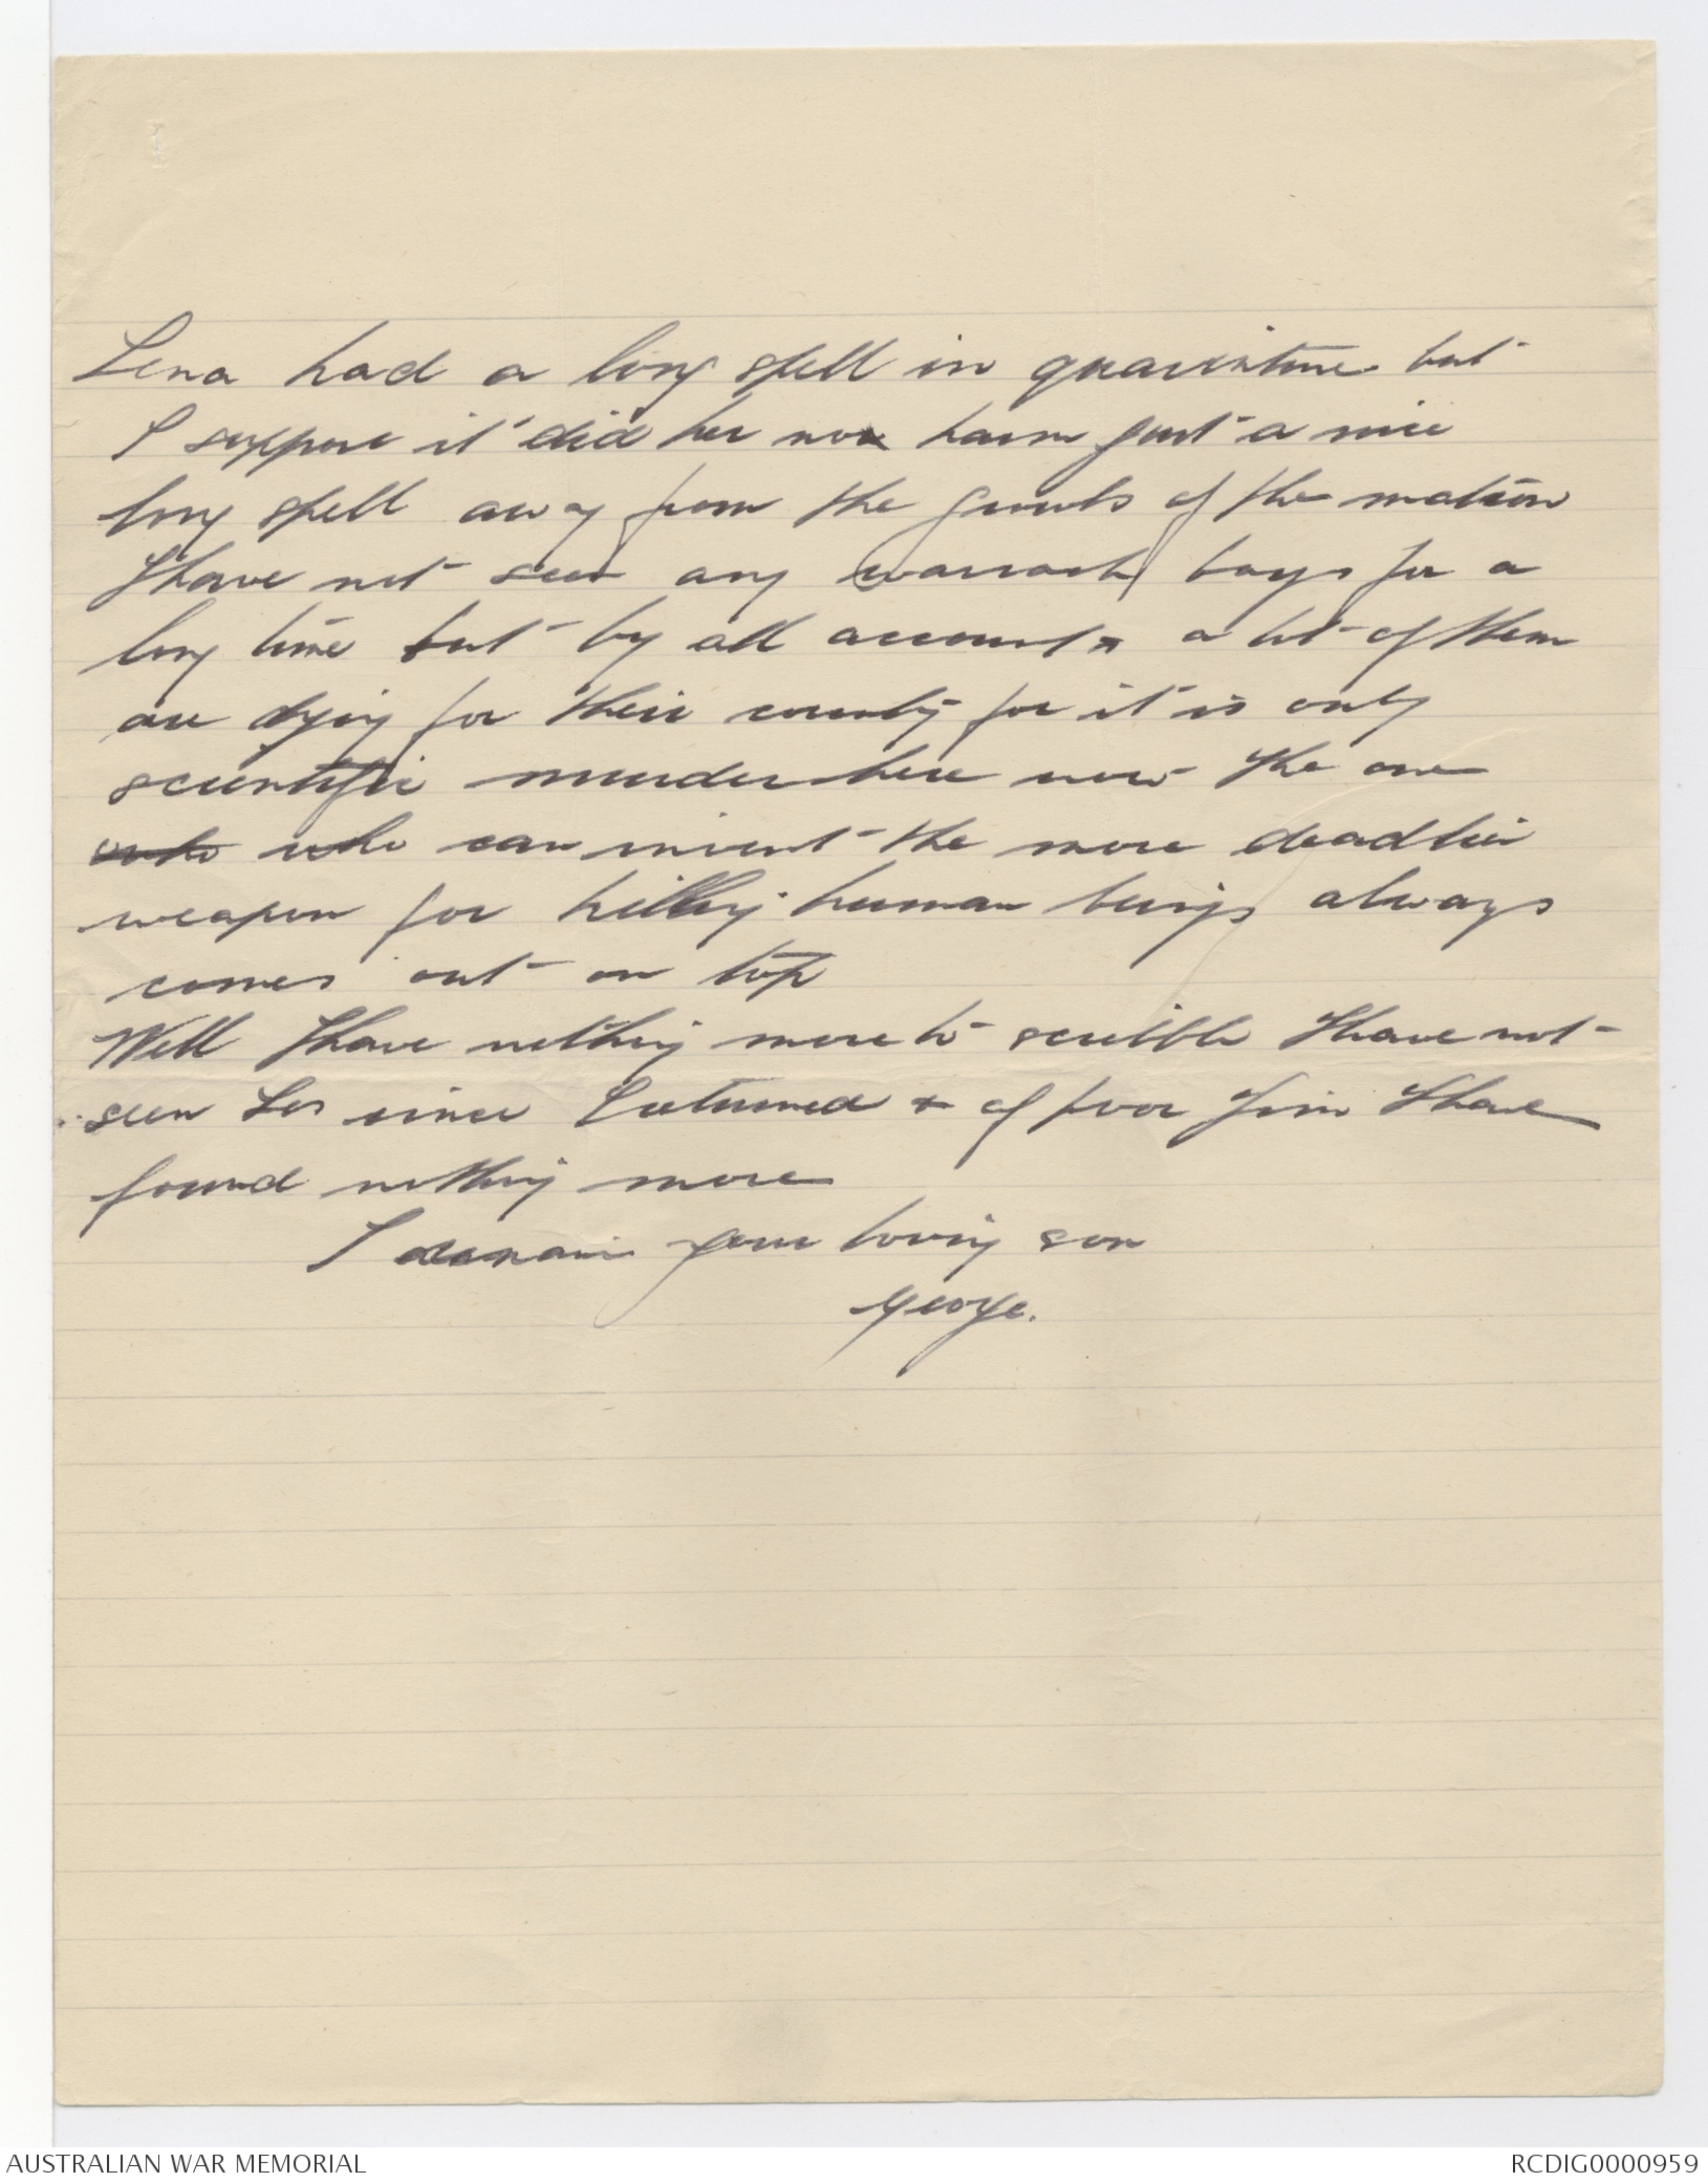 Lena had a long spell in quarantine but
I suppose it did her no harm just a nice
long spell away from the growls of the matron
I have not seen any warrack boys for a
long time but by all accounts a lot of them
are dying for their country for it is only
scientific murder here now the one
who who can invent the more deadlier
weapon for killing human beings always
comes out on top
Well I have nothing more to scribble I have not
seen Les since I returned & of poor Jim I have
found nothing more
I remain your loving son
George.
AUSTRALIAN WAR MEMORIAL
RCDIG0000959